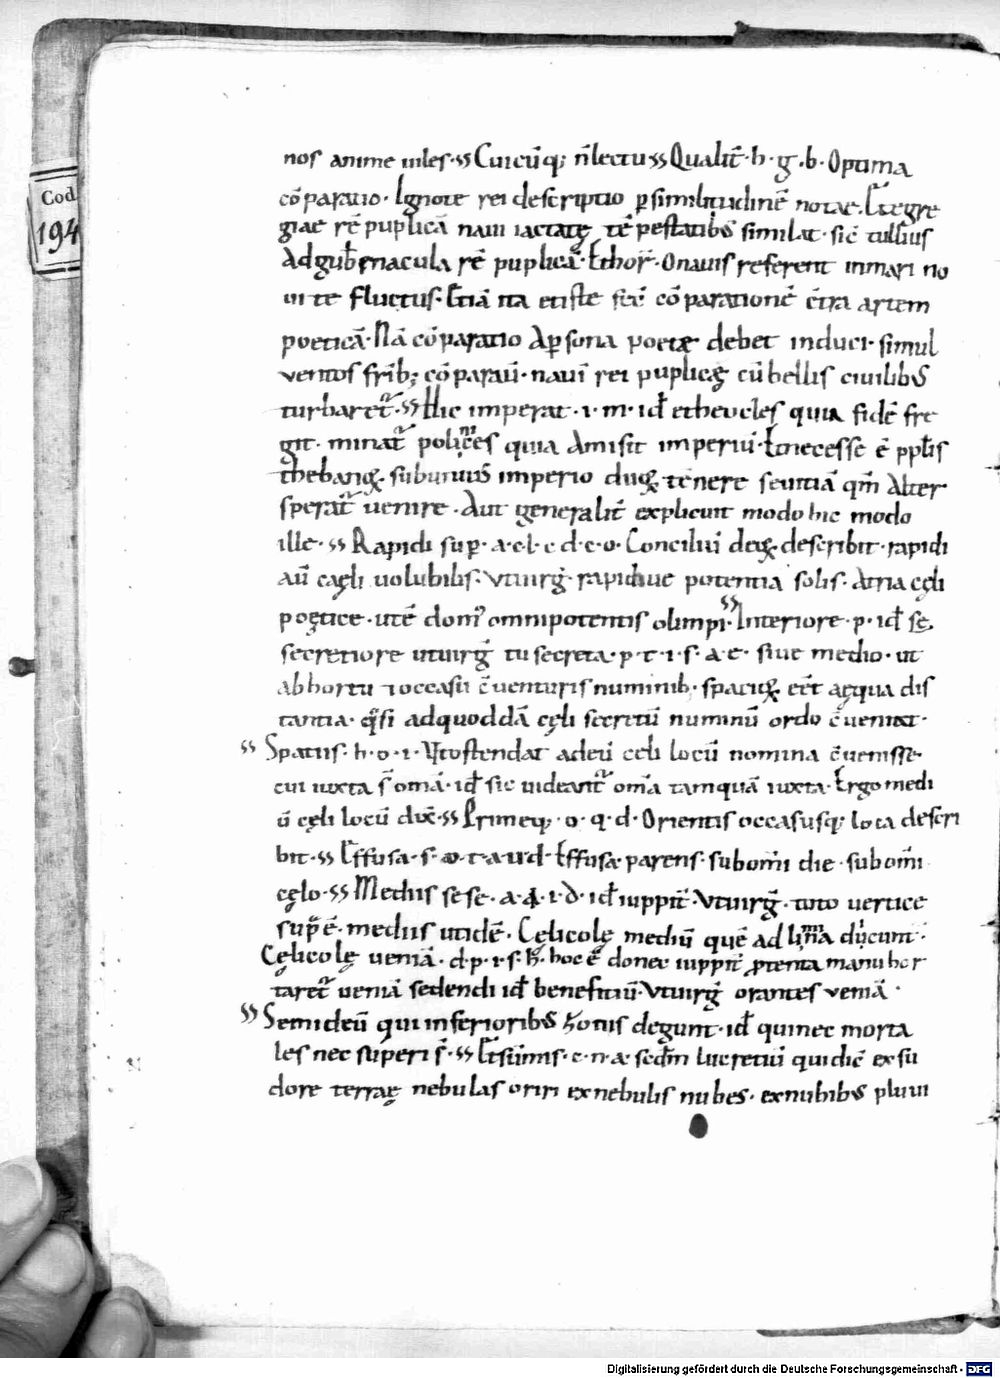 nos anime uiles · Cuicūq; n̄ lectu Qualit̄ · h · g · b · Optima
cōparatio · Ignote rei descriptio p̱ similitudinē notae. Et egre
giae rē puplicā naui iactatę tēpestatib; similat · sic̄ tullius
Ad gub̄nacula rē puplicā · Et hor̄ · O nauis referent in mari no
ui te fluctus · Etiā ita et iste fec̄ cōparationē c̄tra artem
poeticā · Nā cōparatio A p̱sona poetae debet induci · simul
ventos frīb; cōparauī · nauī rei puplicę cū bellis ciuilib;
turbaret̄ · Hic imperat · i · m · id̄ etheocles quia fidē fre
git · minat̄ polinices quia Amisit imperiū · Et necesse ē pp̄lis
thebanoꝝ · sub unius imperio duoꝝ tenere seuitiā qm̄ Alter
sperat̄ uenire · Aut generalit̄ explicuit modo hic modo
ille · Rapidi sup̱ · a · c · l · c · d · c · o · Conciliū deoꝝ describit · rapidi
aū cęli uolubilis · vt uirḡ · rapidiue potentia solis · Atria cęli
poętice · ut ē dom̄ omnipotentis olimpi · Interiore · p · id̄ se
secretiore ut uirḡ tu secreta · p · t · i · s · a · e · siue medio · ut
ab hortu ⁊ occasu c̄uenturis numinib; spacioꝝ eēt aęqua dis
tantia · q̄si ad quoddā cęli secretū numinū ordo c̄ueniat ·
Spatiis · h · o · i · Vt ostendat ad eū celi locū nomina c̄uenisse ·
cui iuxta s̄ om̄a · id̄ sic uideant̄ om̄a tamquā iuxta · Ergo medi
ū cęli locū dix̄ · Primeq; · o · q · d · Orientis occasusq; loca descri
bit · Effusa · s · o · r · a · u · d · Effusa parens · sub om̄i die · sub om̄i
cęlo · Medius sese · a · a · i · d · id̄ iuppit̄ · Vt uirḡ · toto uertice
sup̄ ē · medius ut idē · Cęlicolę mediū quē ad limina ducunt ·
Cęlicolę ueniā · d · p · i · s · h · hoc ē donec iuppit̄ p̱tenta manu hor
taret̄ ueniā sedendi id̄ benefitiū · Vt uirḡ orantes veniā ·
Semideū qui inferiorib; honis degunt · id̄ qui nec morta
les nec superi s̄ · Et sūmis · c · n · a · sedm̄ lucretiū qui dic̄ ex su
dore terrae nebulas oriri ex nebulis nubes · ex nubib; pluui
Cod.
194
Digitalisierung gefördert durch die Deutsche Forschungsgemeinschaft - DFG